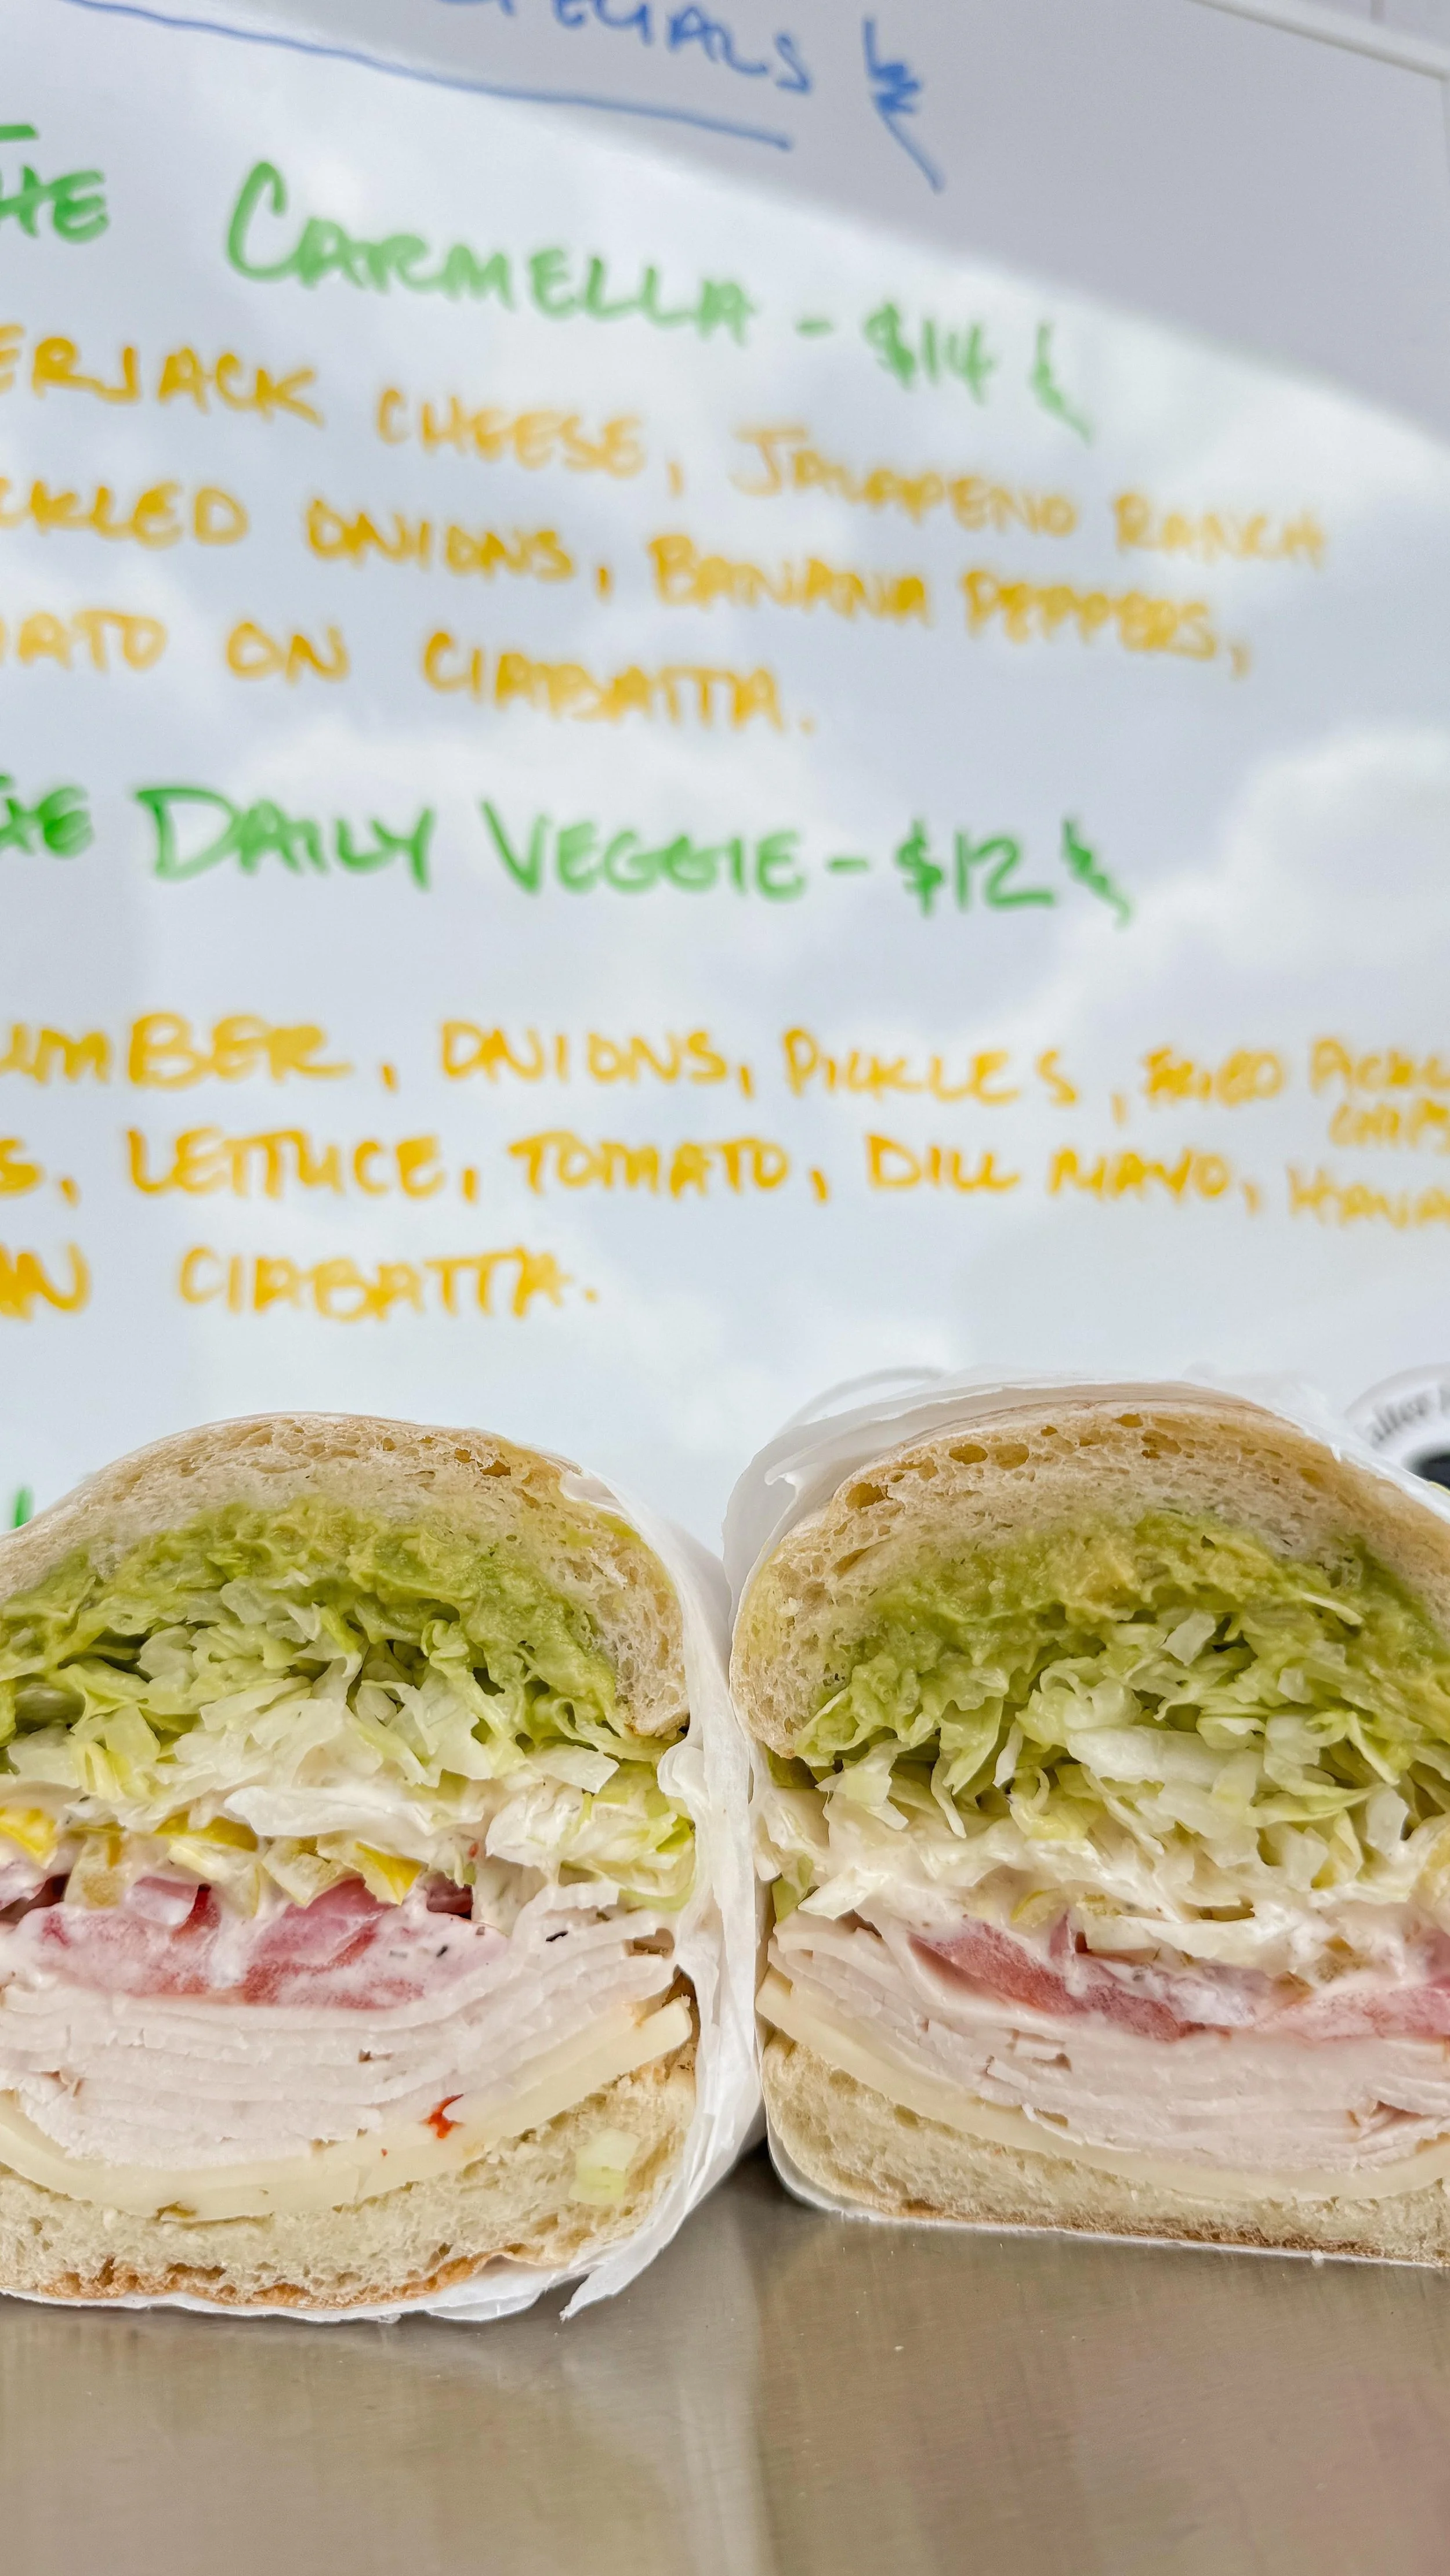 SPECIALS
THE CARMELLA - $14
ERJACK CHEESE, JALAPENO RANCH
CKLED ONIONS, BANANA PEPPERS,
MATO ON CIABATTA.
THE DAILY VEGGIE - $12
UMBER, ONIONS, PICKLES, FRIED PICKL
CHIPS
S, LETTUCE, TOMATO, DILL MAYO, HAVA
ON CIABATTA.